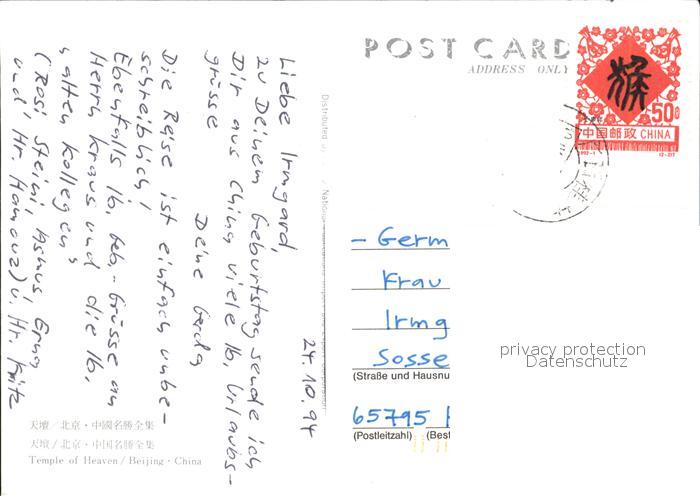 24.10.94
Liebe Irmgard,
zu Deinem Geburtstag sende ich
Dir aus China viele lb. Urlaubs-
grüsse
Deine Gerda
Die Reise ist einfach unbe-
schreiblich!
Ebenfalls lb. Geb.-Grüsse an
Herrn Kraus und die lb.
"alten Kollegen"
(Rosi, Steini, Asmus, Erna
und, Hr. Hanowz) u. Hr.
天壇／北京・中國名勝全集
天坛／北京・中国名胜全集
Temple of Heaven / Beijing · China
Distributed National
POST CARD
ADDRESS ONLY
猴
50分
中国邮政 CHINA
1992-1
(2-2)T
- Germ
Frau
Irmg
Sosse
(Straße und Hausnu
65795
(Postleitzahl) (Best
privacy protection
Datenschutz